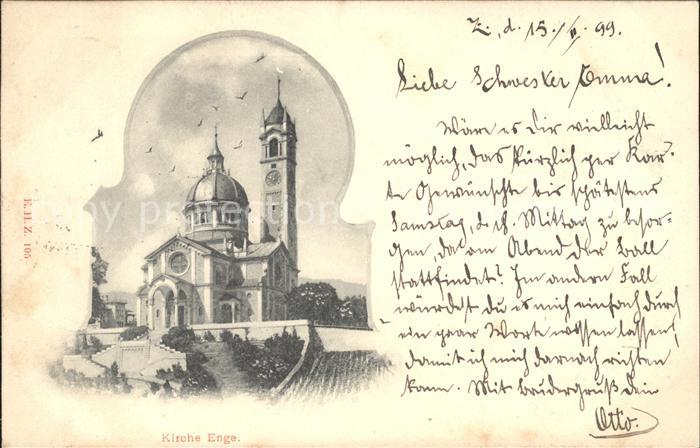 Z., d. 15./V. 99.
Liebe Schwester Emma!
Wäre es dir vielleicht
möglich, das kürzlich per Kar-
te Gewünschte bis spätestens
Samstag, d. M. Mittag zu besor-
gen, da am Abend der Ball
stattfindet? Im andern Fall
würdest du es mich einfach durch
ein paar Worte wissen lassen,
damit ich mich darnach richten
kann. Mit Brudergruß dein
Otto.
E. H. Z. 105
Kirche Enge.